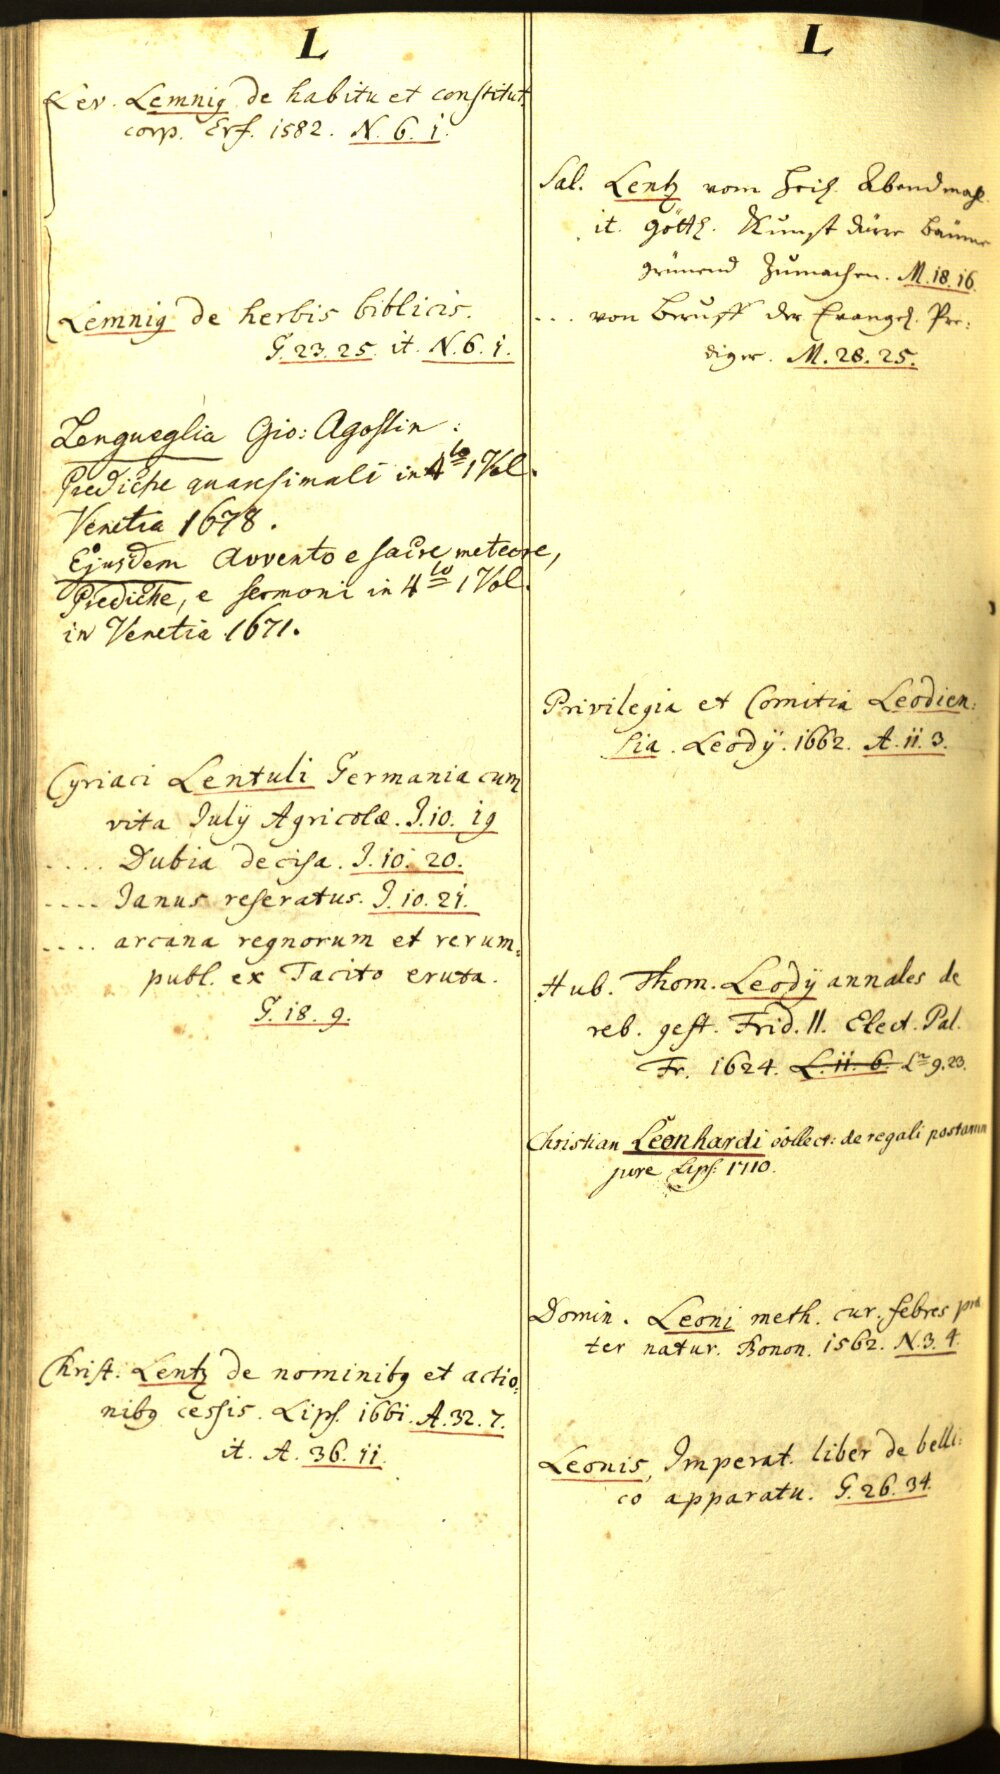 L
Lev. Lemnig de habitu et constitut
corp. Erf. 1582. N. 6. i.
Lemnig de herbis biblicis.
G. 23. 25. it. N. 6. i.
Lengueglia Gio: Agostin:
Prediche quaresimali in 4to 1 Vol.
Venetia 1678.
Ejusdem Avvento e sacre meteore,
Prediche, e sermoni in 4to 1 Vol.
in Venetia 1671.
Cyriaci Lentuli Germania cum
vita Julÿ Agricolæ. J. io. ig
.... Dubia decisa. J. io. 20.
.... Janus reseratus. J. io. 2i.
.... arcana regnorum et rerum
publ. ex Tacito eruta.
G. i8. 9.
Christ. Lentz de nominibg et actio:
nibg cessis. Lips. i66i. A. 32. 7.
it. A. 36. ii.
L
Sal. Lentz vom Heil. Abendmahl.
it. Göttl. Kunst dürre bäume
grünend zumachen. M. i8. i6.
... von Beruff der Evangel. Pre:
diger. M. 28. 25.
Privilegia et Comitia Leodien:
sia. Leodÿ. i662. A. ii. 3.
Hub. Thom. Leodÿ annales de
reb. gest. Frid. II. Elect. Pal.
Fr. 1624. L. ii. 6. L. 9. 23.
Christian Leonhardi collect: de regali postarum
jure Lips: 1710.
Domin. Leoni meth. cur. febres præ
ter natur. Bonon. i562. N. 3. 4.
Leonis, Imperat. liber de belli:
co apparatu. G. 26. 34.